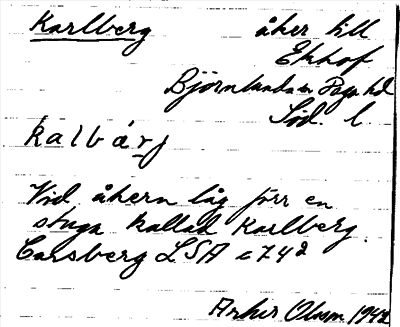 Karlberg åker till
Ekhof
Björnlunda sn Daga hd
Söd. l.
kalbárj
Vid åkern låg förr en
stuga kallad Karlberg.
Carlsberg LSA c74²
Arhur Olsson 1942